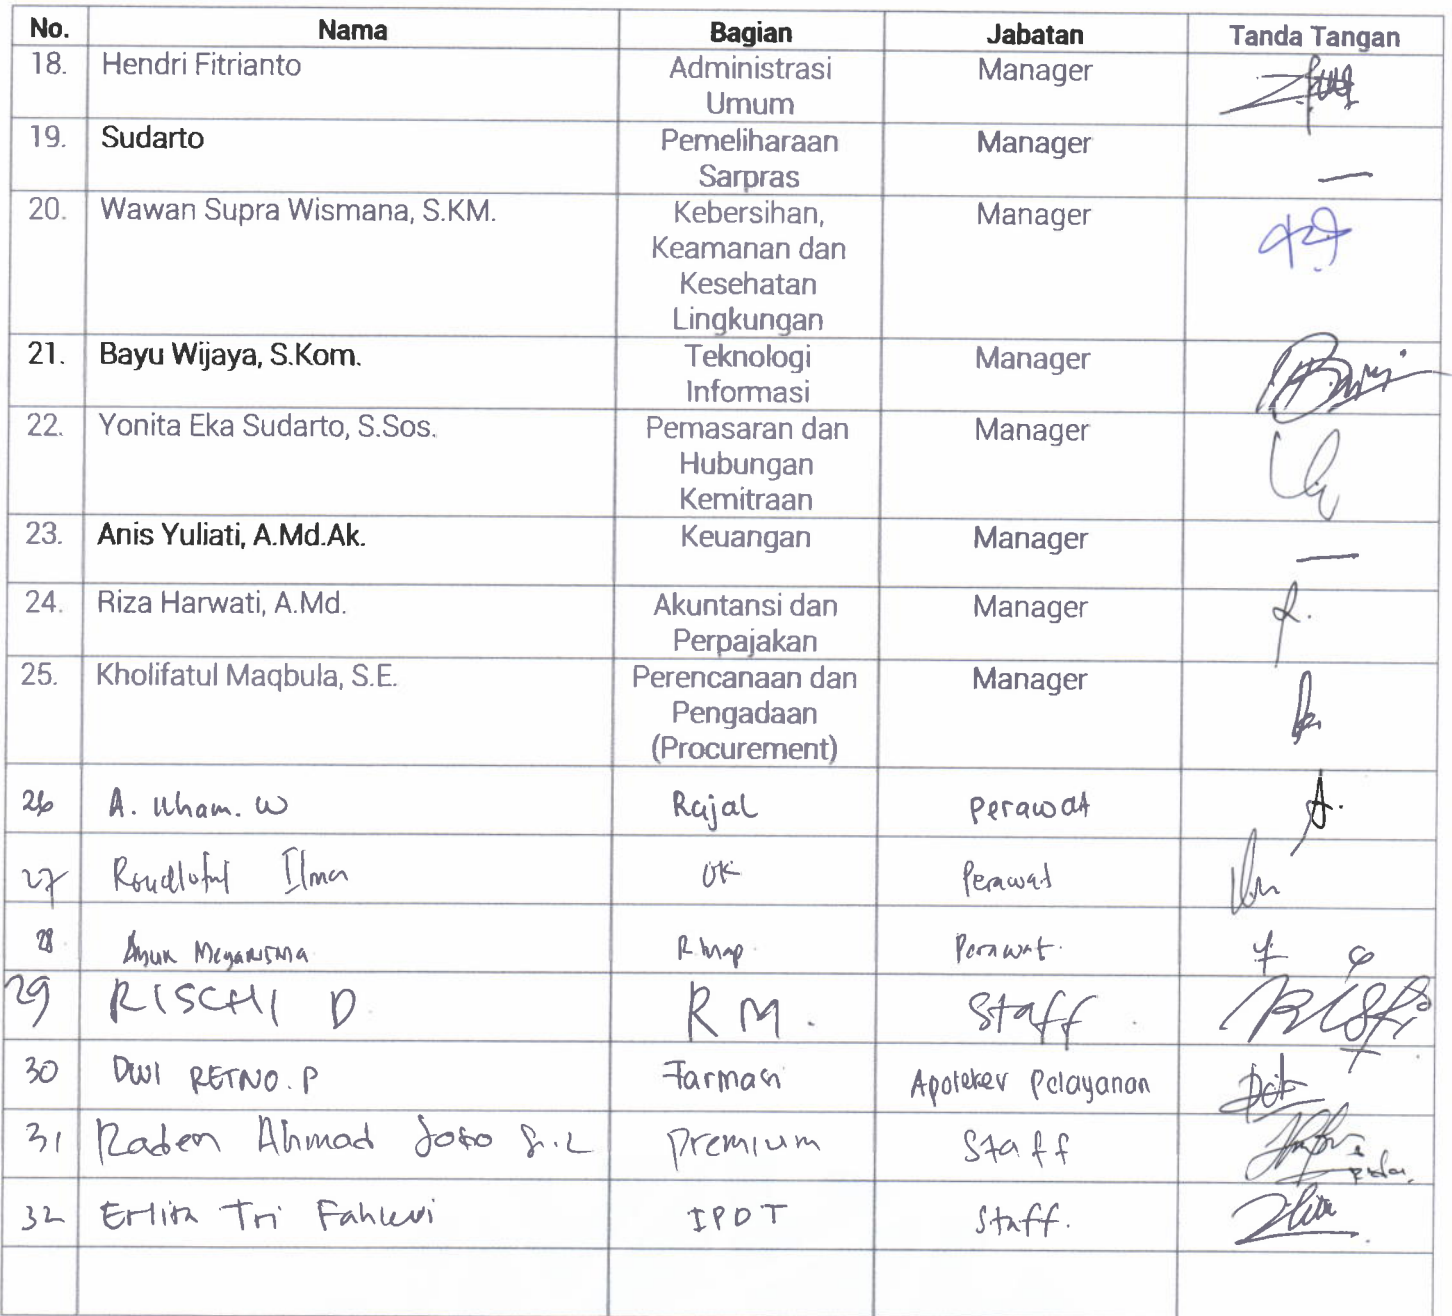 No. Nama Bagian Jabatan Tanda Tangan
18. Hendri Fitrianto Administrasi Manager
Umum
19. Sudarto Pemeliharaan Manager
Sarpras —
20. Wawan Supra Wismana, S.KM. Kebersihan, Manager
Keamanan dan
Kesehatan
Lingkungan
21. Bayu Wijaya, S.Kom. Teknologi Manager
Informasi
22. Yonita Eka Sudarto, S.Sos. Pemasaran dan Manager
Hubungan
Kemitraan
23. Anis Yuliati, A.Md.Ak. Keuangan Manager —
24. Riza Harwati, A.Md. Akuntansi dan Manager
Perpajakan
25. Kholifatul Maqbula, S.E. Perencanaan dan Manager
Pengadaan
(Procurement)
26 A. Ilham. W Rajal Perawat A.
27 Roudlotul Ilma OK Perawat
28 Megarisma Perawat.
29 RISCHI D RM. Staff .
30 DWI RETNO. P Farmasi Apoteker Pelayanan
31 Raden Ahmad Premium Staff
32 Erlita Tri Fahlevi IPDT Staff.